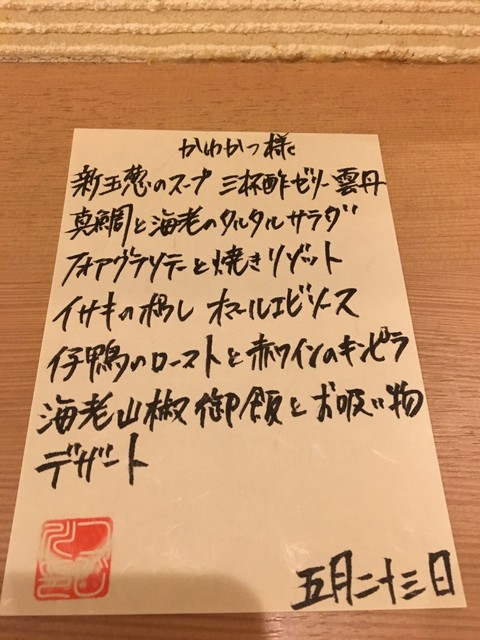 かわかつ様
新玉葱のスープ 三杯酢ゼリー 雲丹
真鯛と海老のタルタル サラダ
フォアグラソテーと焼きリゾット
イサキの蒸し オマールエビソース
仔鴨のローストと赤ワインのキンピラ
海老山椒御飯とお吸い物
デザート
五月二十三日